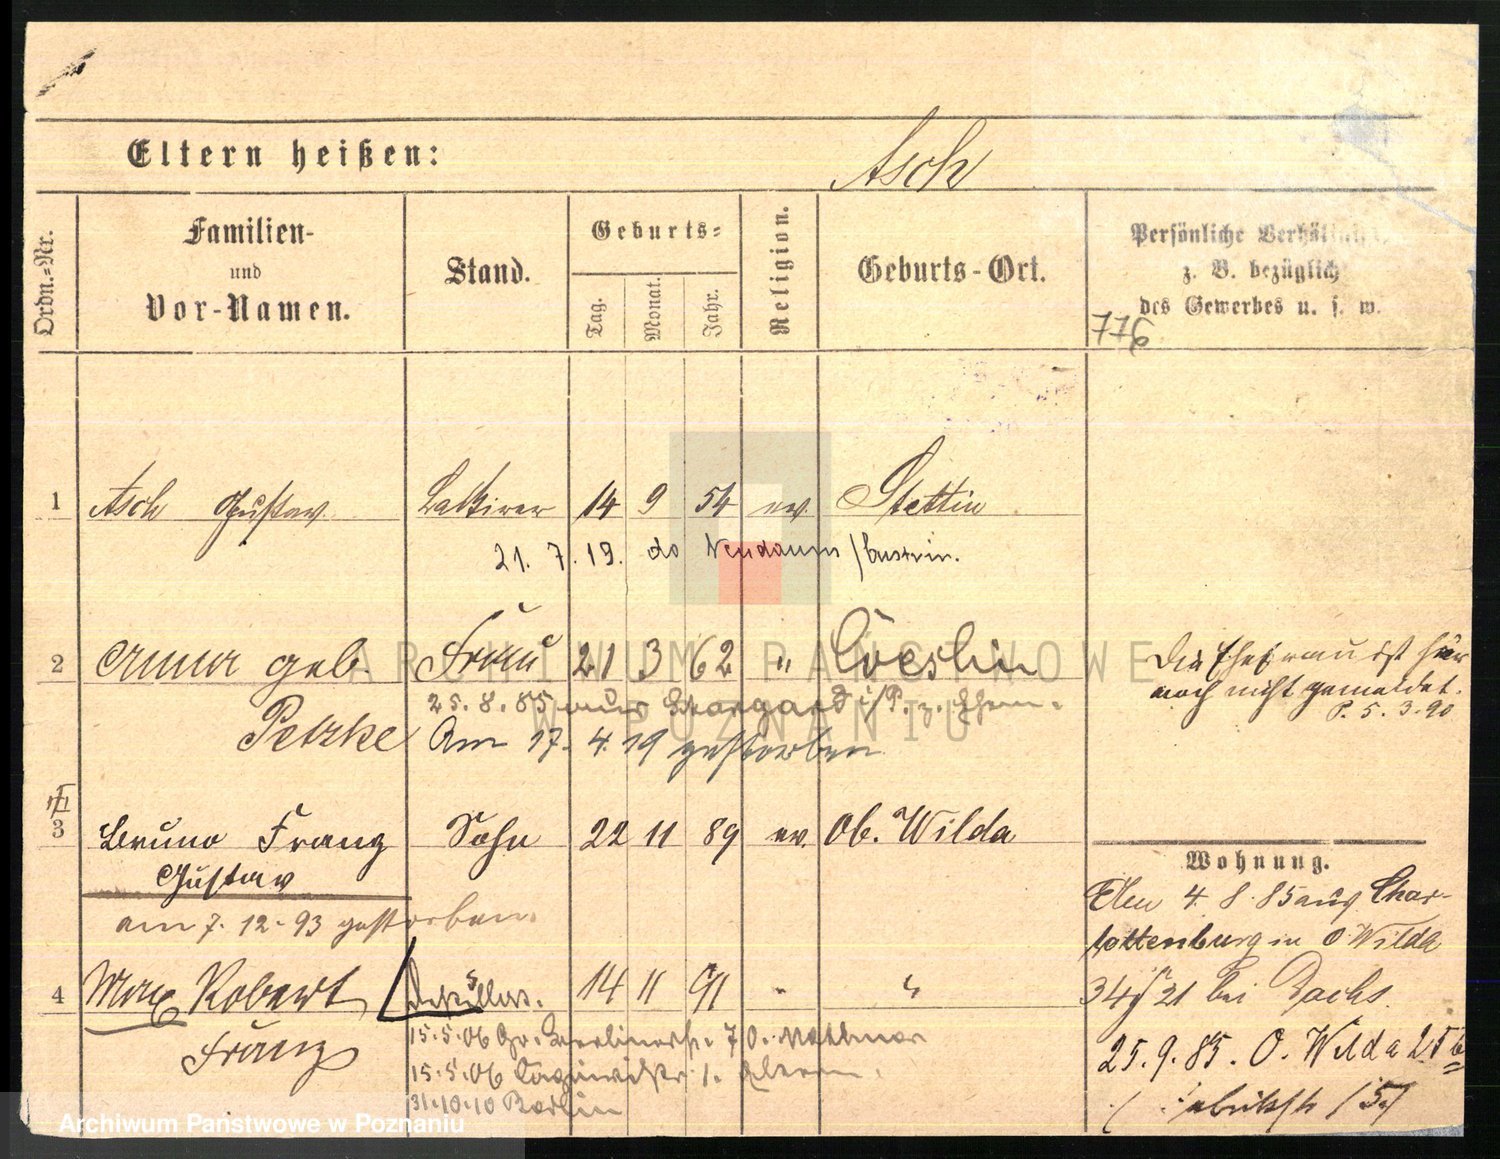 Eltern heißen:
Asch
Ordn.=Nr.
Familien-
und
Vor-Namen.
Stand.
Geburts=
Tag.
Monat.
Jahr.
Religion.
Geburts-Ort.
Persönliche Verhältnisse,
z. B. bezüglich
des Gewerbes u. s. w.
776
1 Asch Gustav Lackirer 14 9 54 ev. Stettin
21. 7. 19. do Neudamm / Custrin.
2 Anna geb. Frau 21 3 62 " Cöeslin
Petzke
25. 8. 85 aus Stargard i/P. z. Ehem.
Am 17. 4. 19 gestorben
Die Ehefrau ist hier
noch nicht gemeldet.
P. 5. 3. 90
3 Bruno Franz Sohn 22 11 89 ev. Ob. Wilda
Gustav
am 7. 12. 93 gestorben.
4 Max Robert 14 11 91 "
Franz
15. 5. 06 Gr. Berlinerstr. 70.
15. 5. 06 1. Eltern.
31.10.10 Berlin
Wohnung.
4. 8. 85 aus Char-
lottenburg in O. Wilda
34/21 bei Dachs.
25. 9. 85. O. Wilda 25
ARCHIWUM PAŃSTWOWE
W POZNANIU
Archiwum Państwowe w Poznaniu